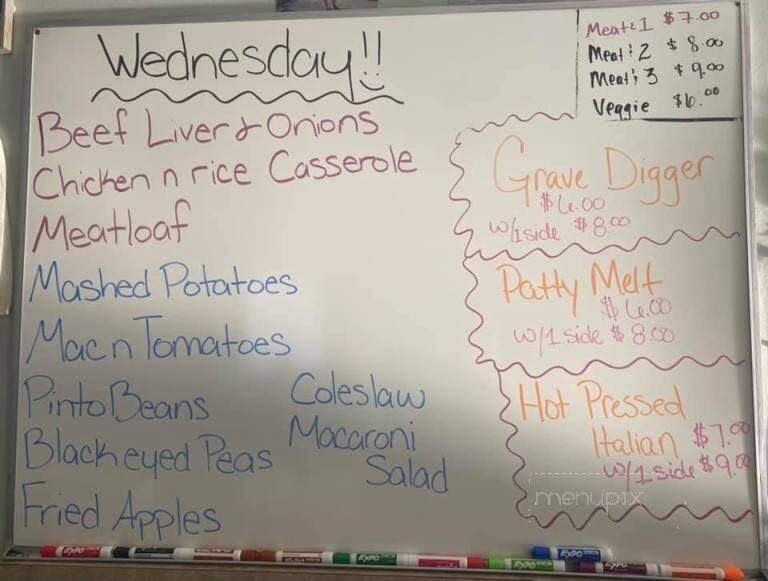 Wednesday!!
Meat & 1 $7.00
Meat & 2 $8.00
Meat & 3 $9.00
Veggie $6.00
Beef Liver & Onions
Chicken n rice Casserole
Meatloaf
Mashed Potatoes
Mac n Tomatoes
Pinto Beans
Blackeyed Peas
Fried Apples
Coleslaw
Macaroni
Salad
Grave Digger
$6.00
w/1 side $8.00
Patty Melt
$6.00
w/1 side $8.00
Hot Pressed
Italian $7.00
w/1 side $9.00
menupix
EXPO
EXPO
EXPO
EXPO
EXPO